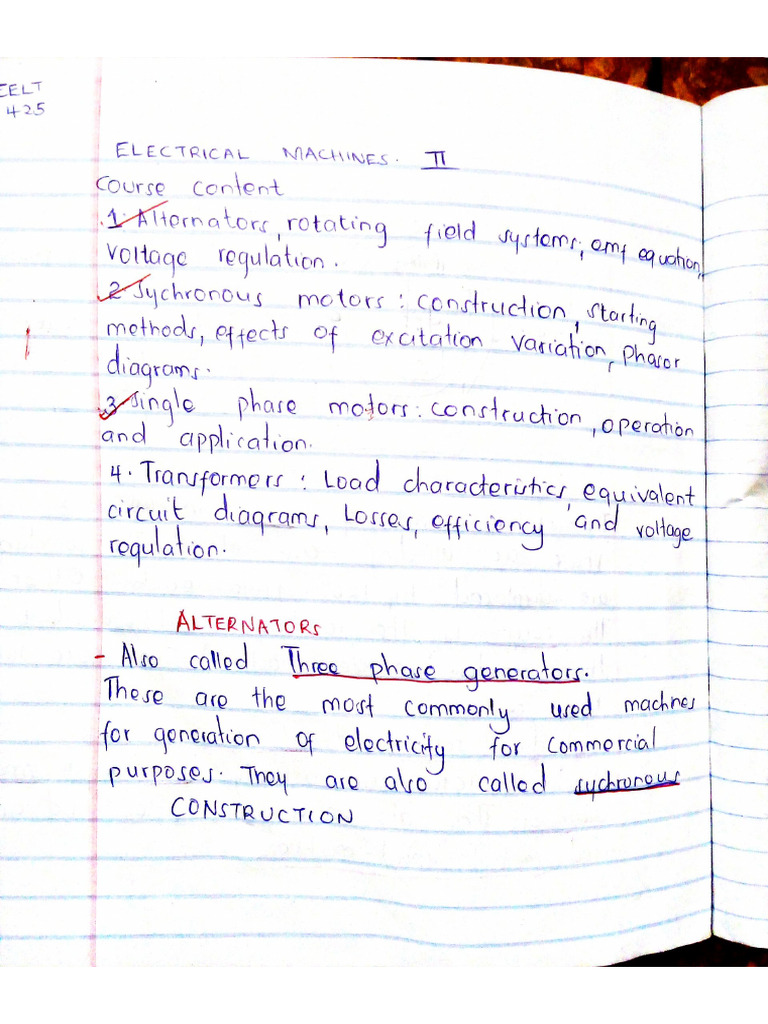 EELT
425
ELECTRICAL MACHINES. II
Course content
.1. Alternators, rotating field systems; emf equation,
voltage regulation.
2 Sychronous motors: construction, starting
methods, effects of excitation variation, phasor
diagrams.
.3. Single phase motors: construction, operation
and application.
4. Transformers: Load characteristics, equivalent
circuit diagrams, Losses, efficiency and voltage
regulation.
ALTERNATORS
- Also called Three phase generators.
These are the most commonly used machnes
for generation of electricity for commercial
purposes. They are also called sychronous
CONSTRUCTION